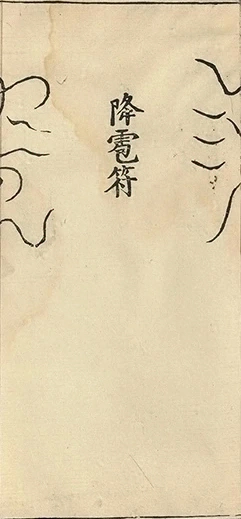 降雹符